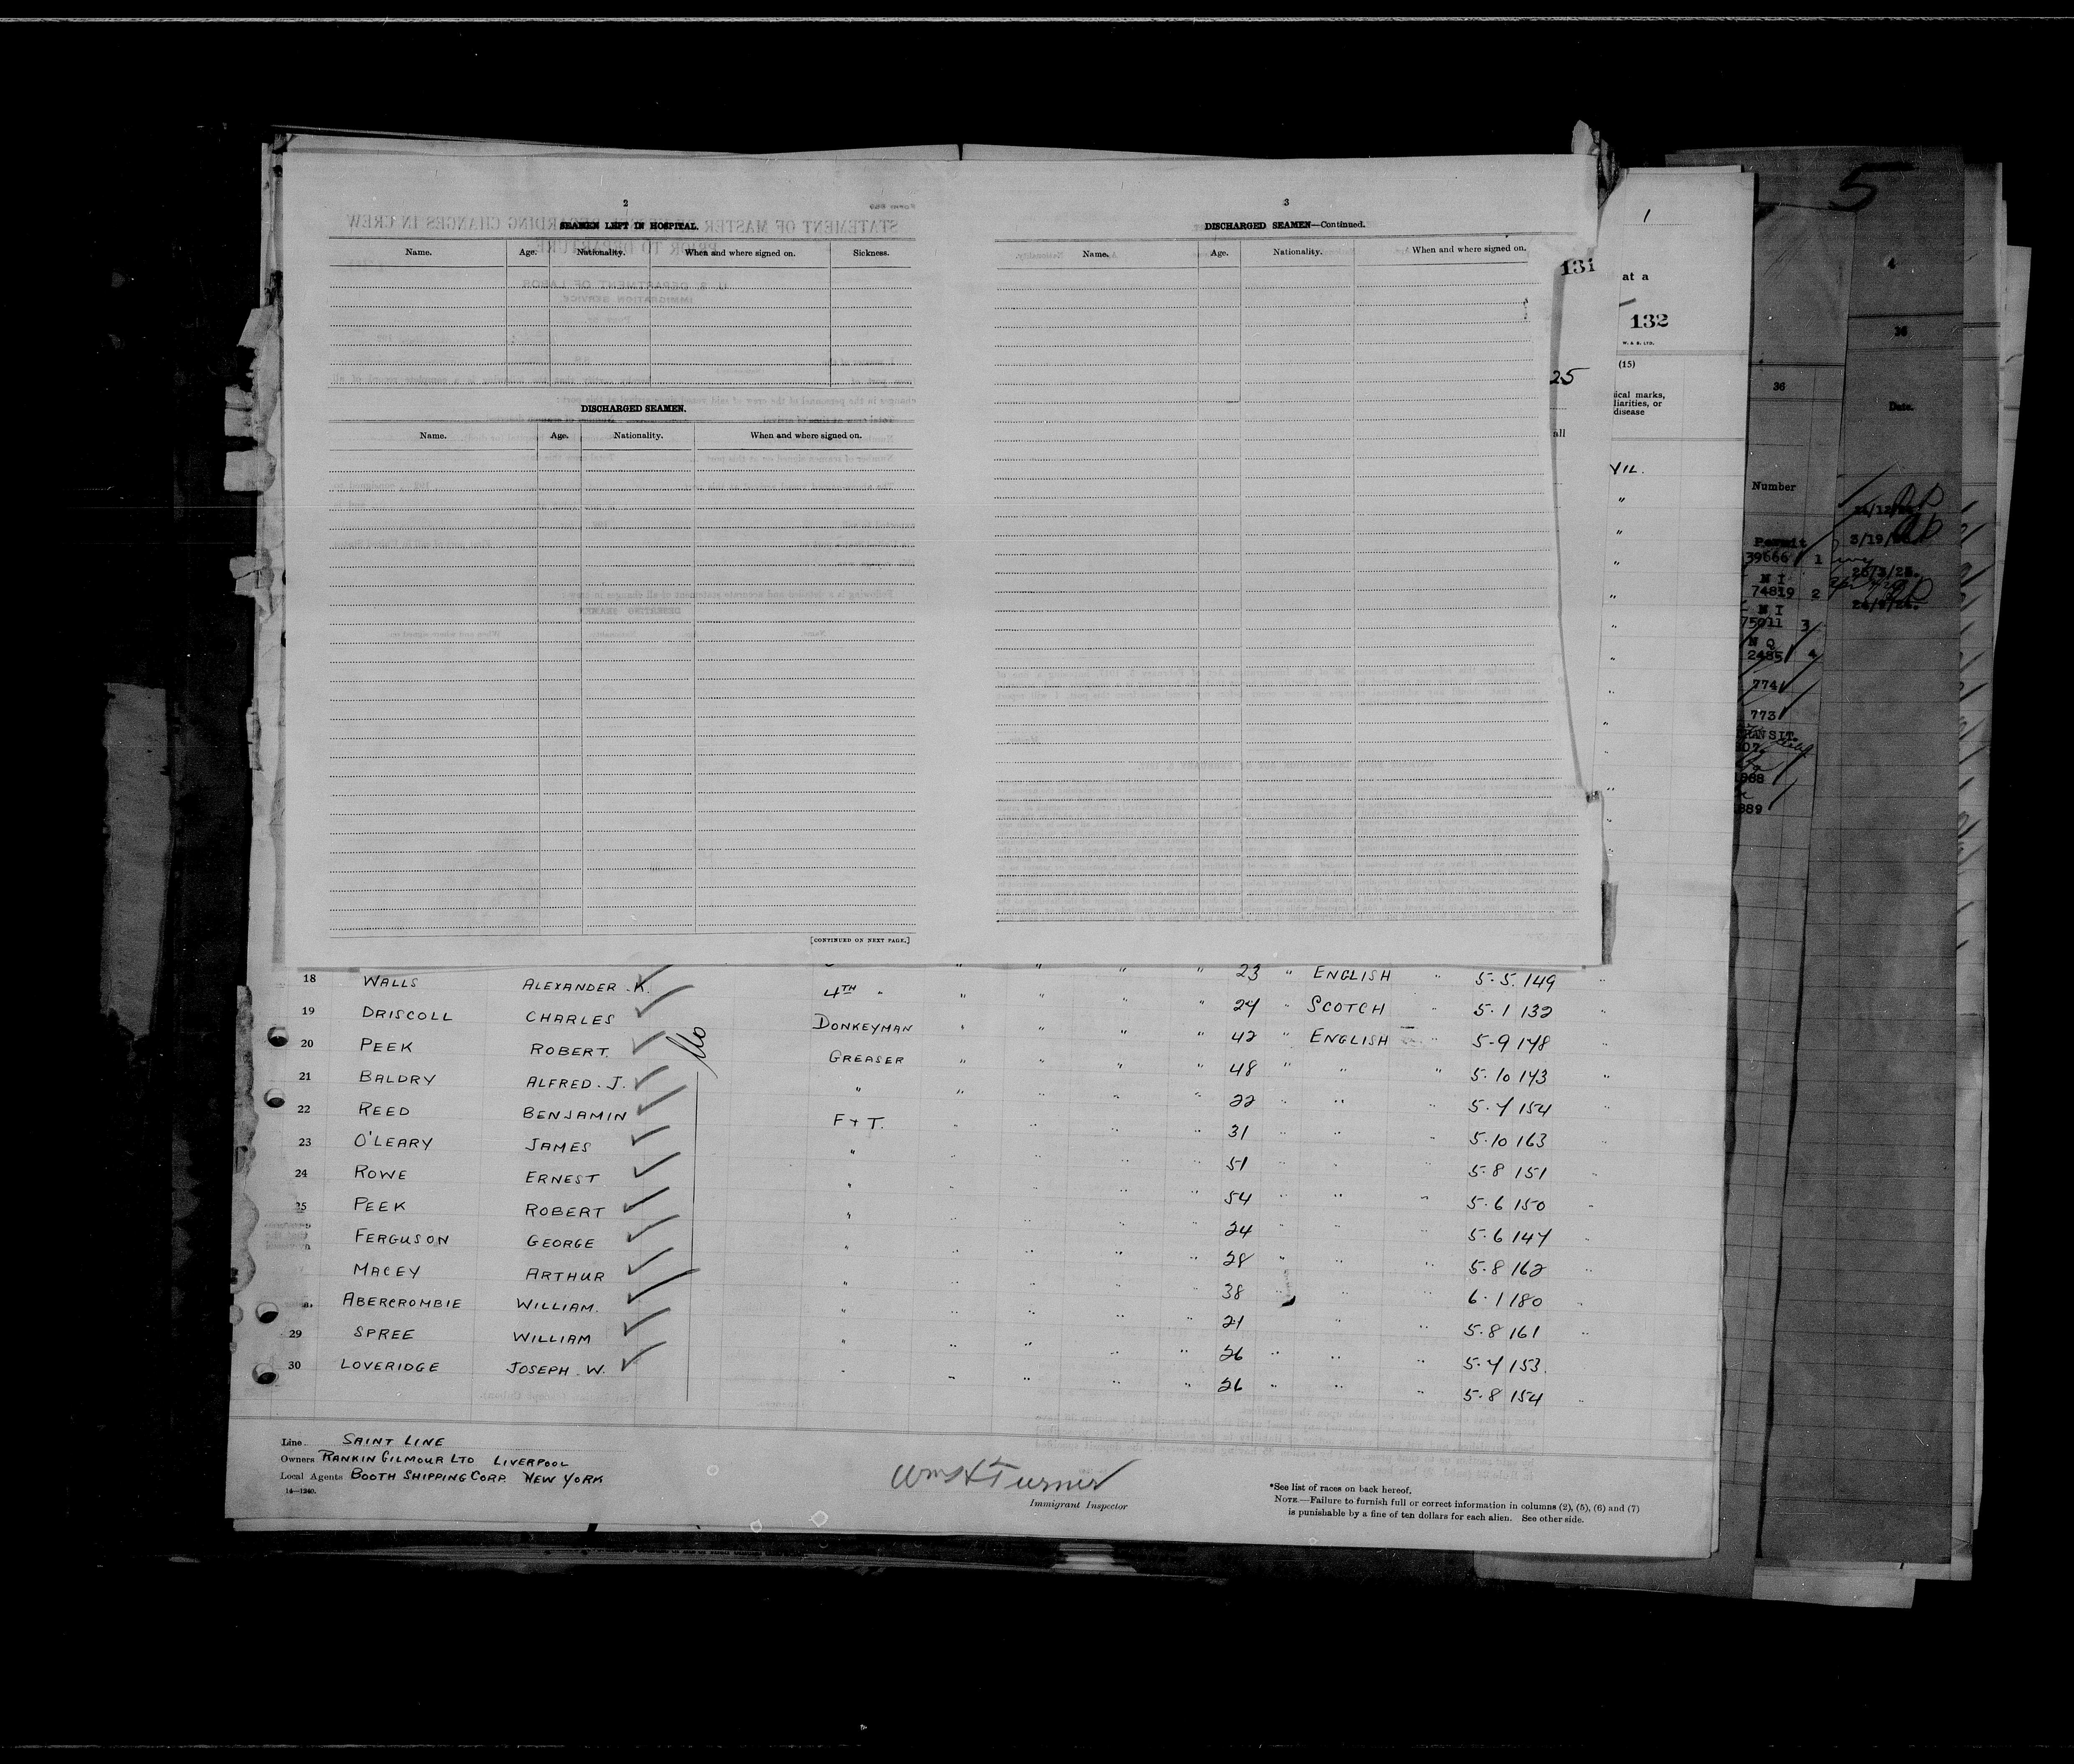 2
SEAMEN LEFT IN HOSPITAL.
Name. Age. Nationality. When and where signed on. Sickness.
DISCHARGED SEAMEN.
Name. Age. Nationality. When and where signed on.
[CONTINUED ON NEXT PAGE.]
3
DISCHARGED SEAMEN—Continued.
Name. Age. Nationality. When and where signed on.
131
25
all
1
at a
132
W. & S. LTD.
(15)
ical marks,
liarities, or
disease
5
4
36
Date.
Number
Permit
39666 1
N I
74819 2
N I
75011 3
N Q
2485 4
774
773
18 WALLS ALEXANDER. K. 4TH " " " " " 23 " ENGLISH " 5.5. 149 "
19 DRISCOLL CHARLES DONKEYMAN " " " " 24 " SCOTCH " 5.1 132 "
20 PEEK ROBERT. GREASER " " " " 42 " ENGLISH " 5.9 148 "
21 BALDRY ALFRED. J. " " " " " 48 " " " 5.10 143 "
22 REED BENJAMIN F & T. " " " " 22 " " " 5.4 154 "
23 O'LEARY JAMES " " " " " 31 " " " 5.10 163
24 ROWE ERNEST " " " " " 51 " " " 5.8 151 "
25 PEEK ROBERT " " " " " 54 " " " 5.6 150 "
FERGUSON GEORGE " " " " " 24 " " " 5.6 147
MACEY ARTHUR " " " " " 28 " " " 5.8 162
ABERCROMBIE WILLIAM. " " " " " 38 " " " 6.1 180 "
29 SPREE WILLIAM " " " " " 21 " " 5.8 161 "
30 LOVERIDGE JOSEPH. W. " " " " " 26 " " " 5.4 153.
26 " " " 5.8 154 "
Line SAINT LINE
Owners RANKIN GILMOUR LTD LIVERPOOL
Local Agents BOOTH SHIPPING CORP. NEW YORK
14—1240.
Wm H Turner
Immigrant Inspector
*See list of races on back hereof.
NOTE.—Failure to furnish full or correct information in columns (2), (5), (6) and (7)
is punishable by a fine of ten dollars for each alien. See other side.